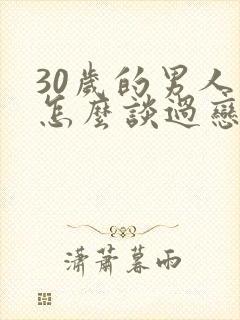 30歲的男人
怎麼談過戀
瀟蕭暮雨